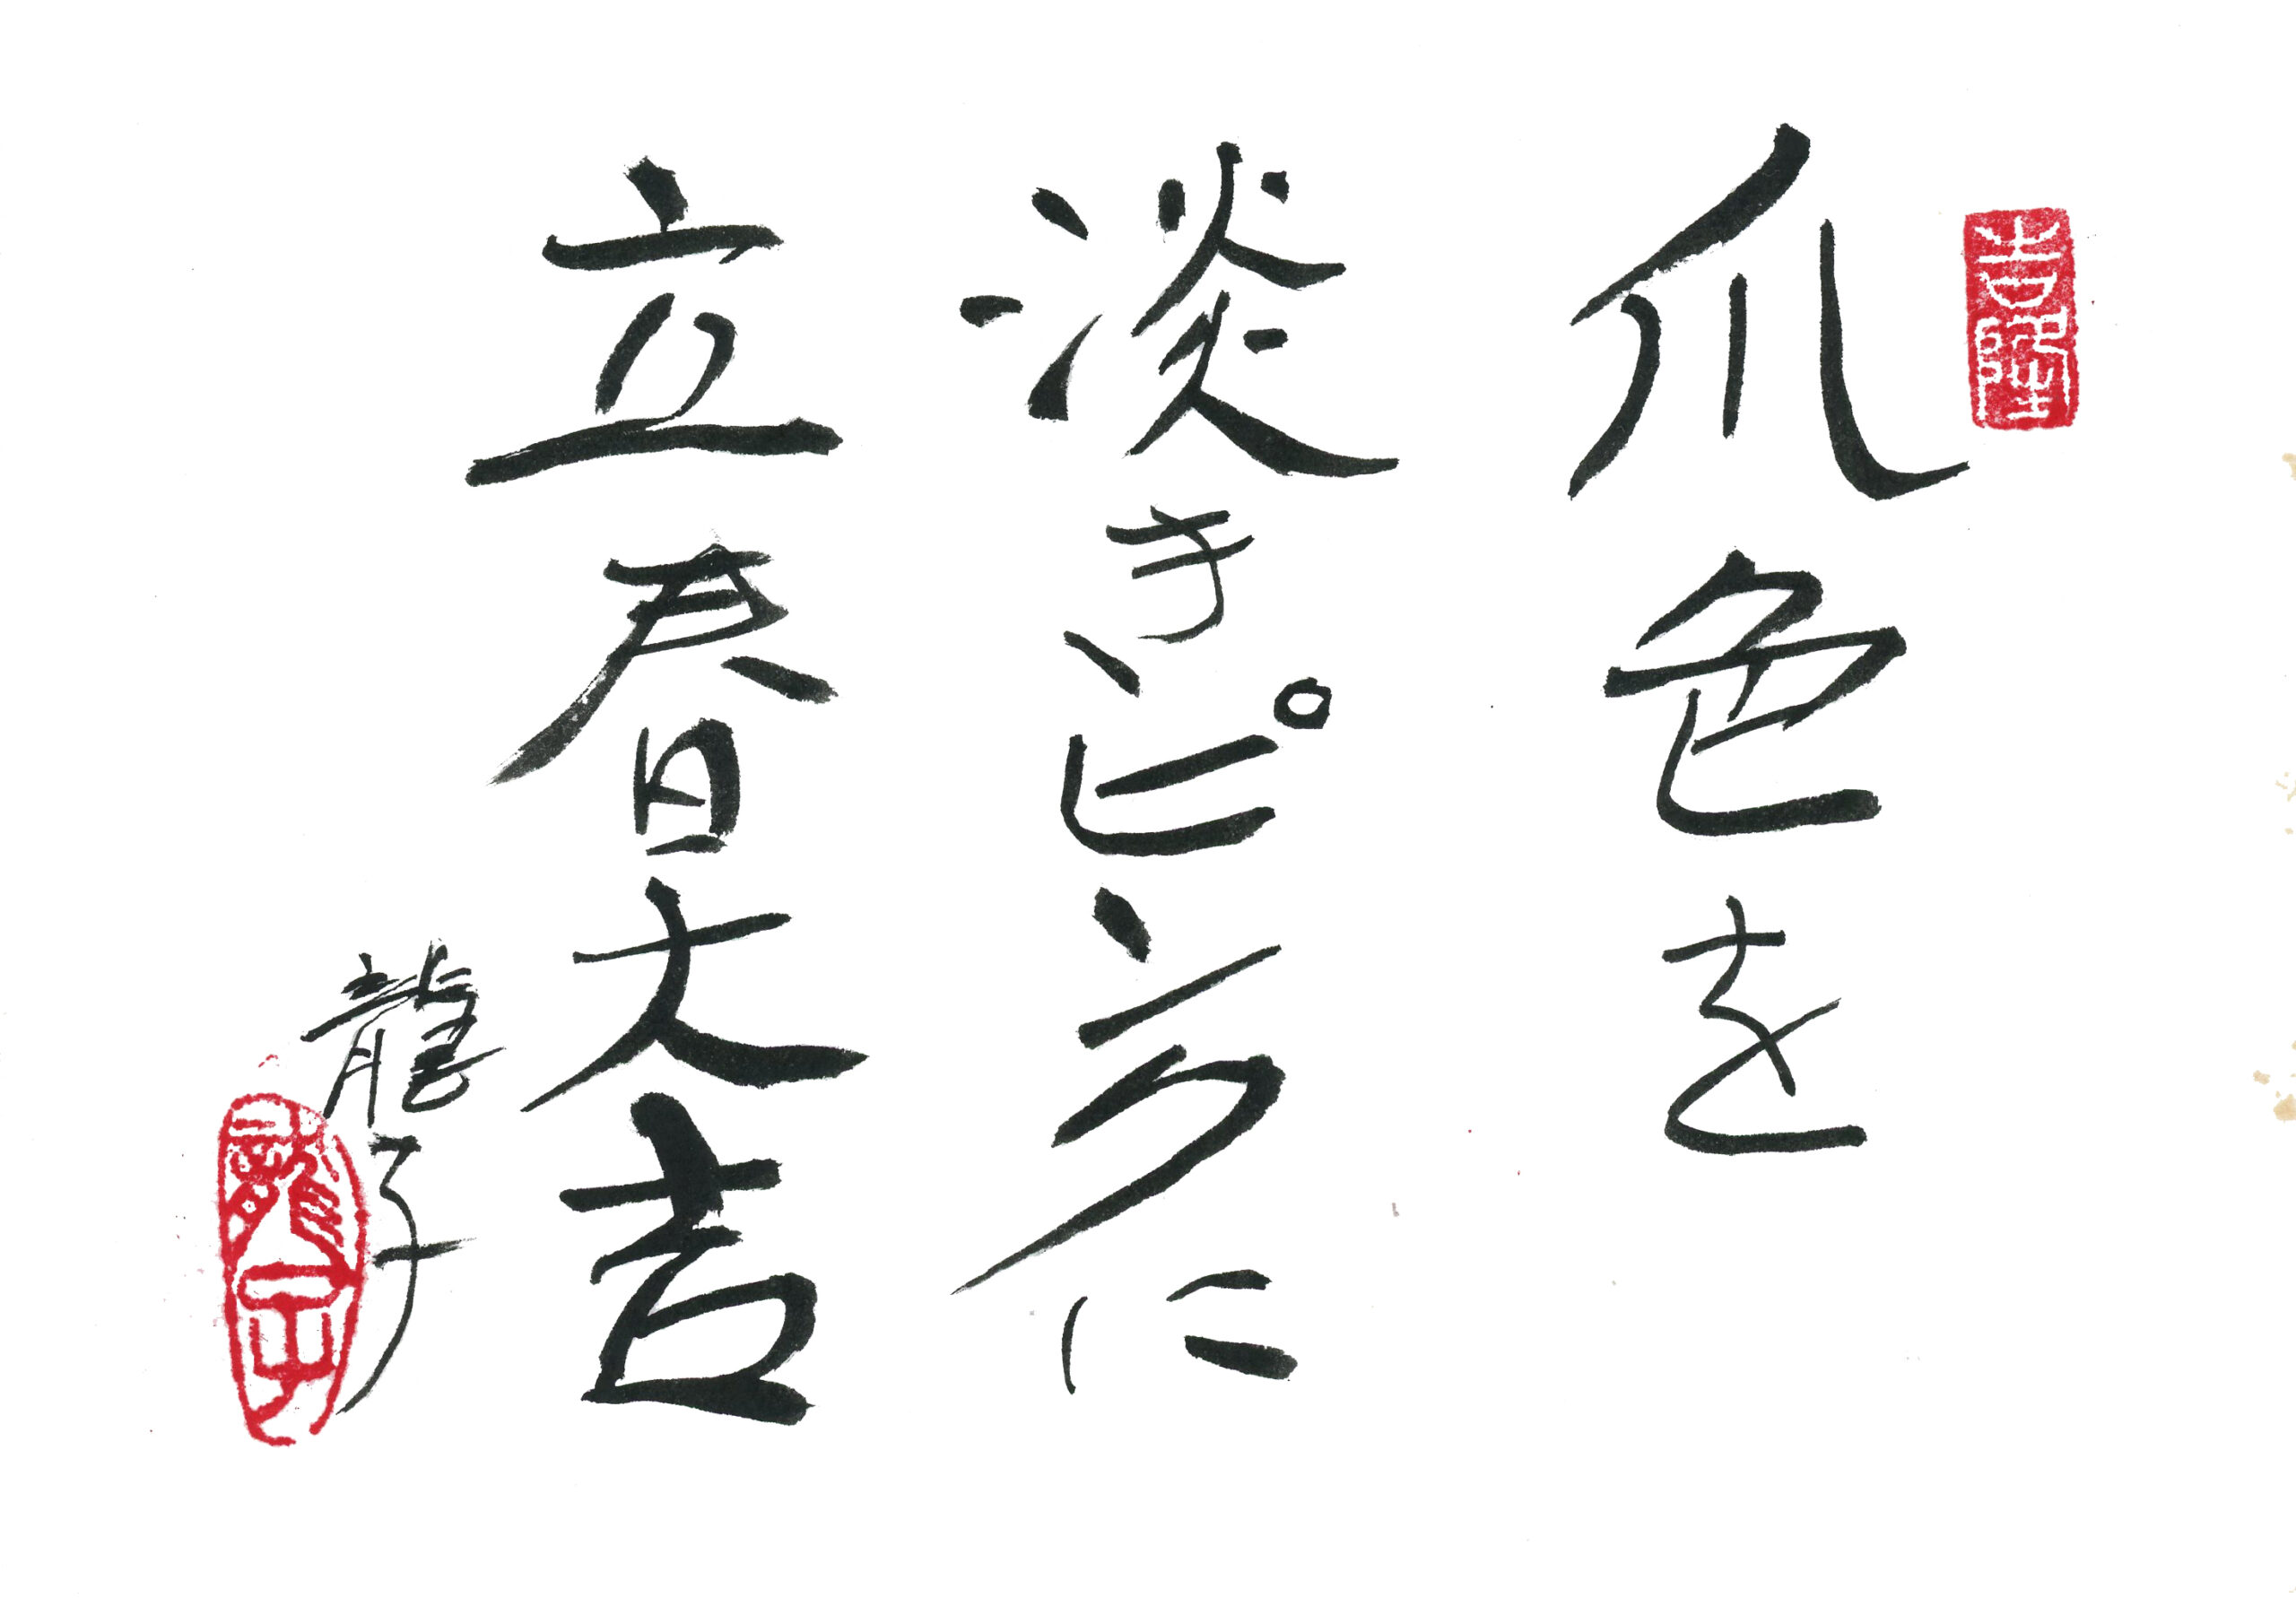 爪色を
淡きピンクに
立春大吉
龍子
龍子